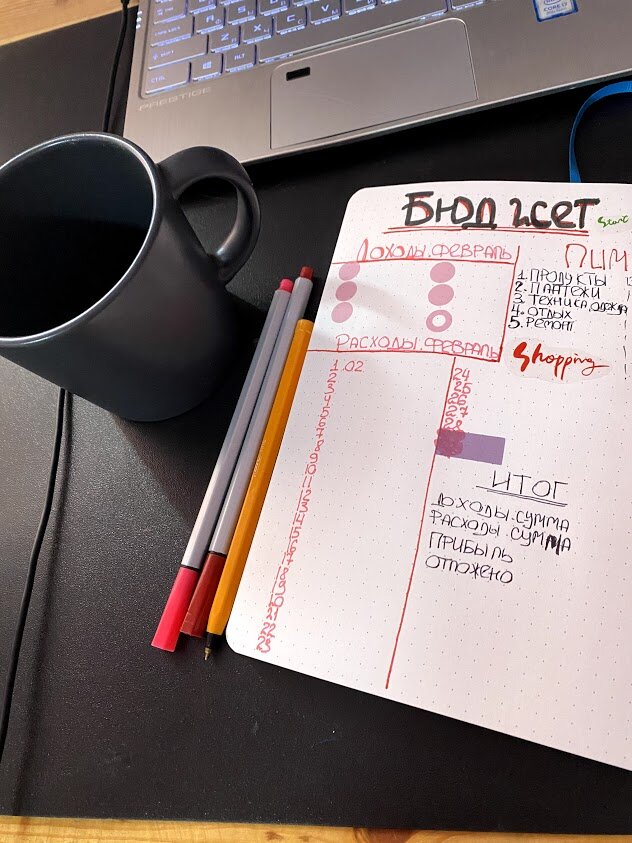 PRESTIGE
CTRL
ALT
БЮДЖЕТ
Start
ДОХОДЫ.ФЕВРАЛЬ
ЛИМ
1. ПРОДУКТЫ
2. ПЛАТЕЖИ
3. ТЕХНИКА, ОДЕЖДА
4. ОТДЫХ
5. РЕМОНТ
Shopping
РАСХОДЫ.ФЕВРАЛЬ
1.02
2
3
4
5
6
7
8
9
10
11
12
13
14
15
16
17
18
19
20
21
22
23
24
25
26
27
28
ИТОГ
ДОХОДЫ.СУММА
РАСХОДЫ.СУММА
ПРИБЫЛЬ
ОТЛОЖЕНО